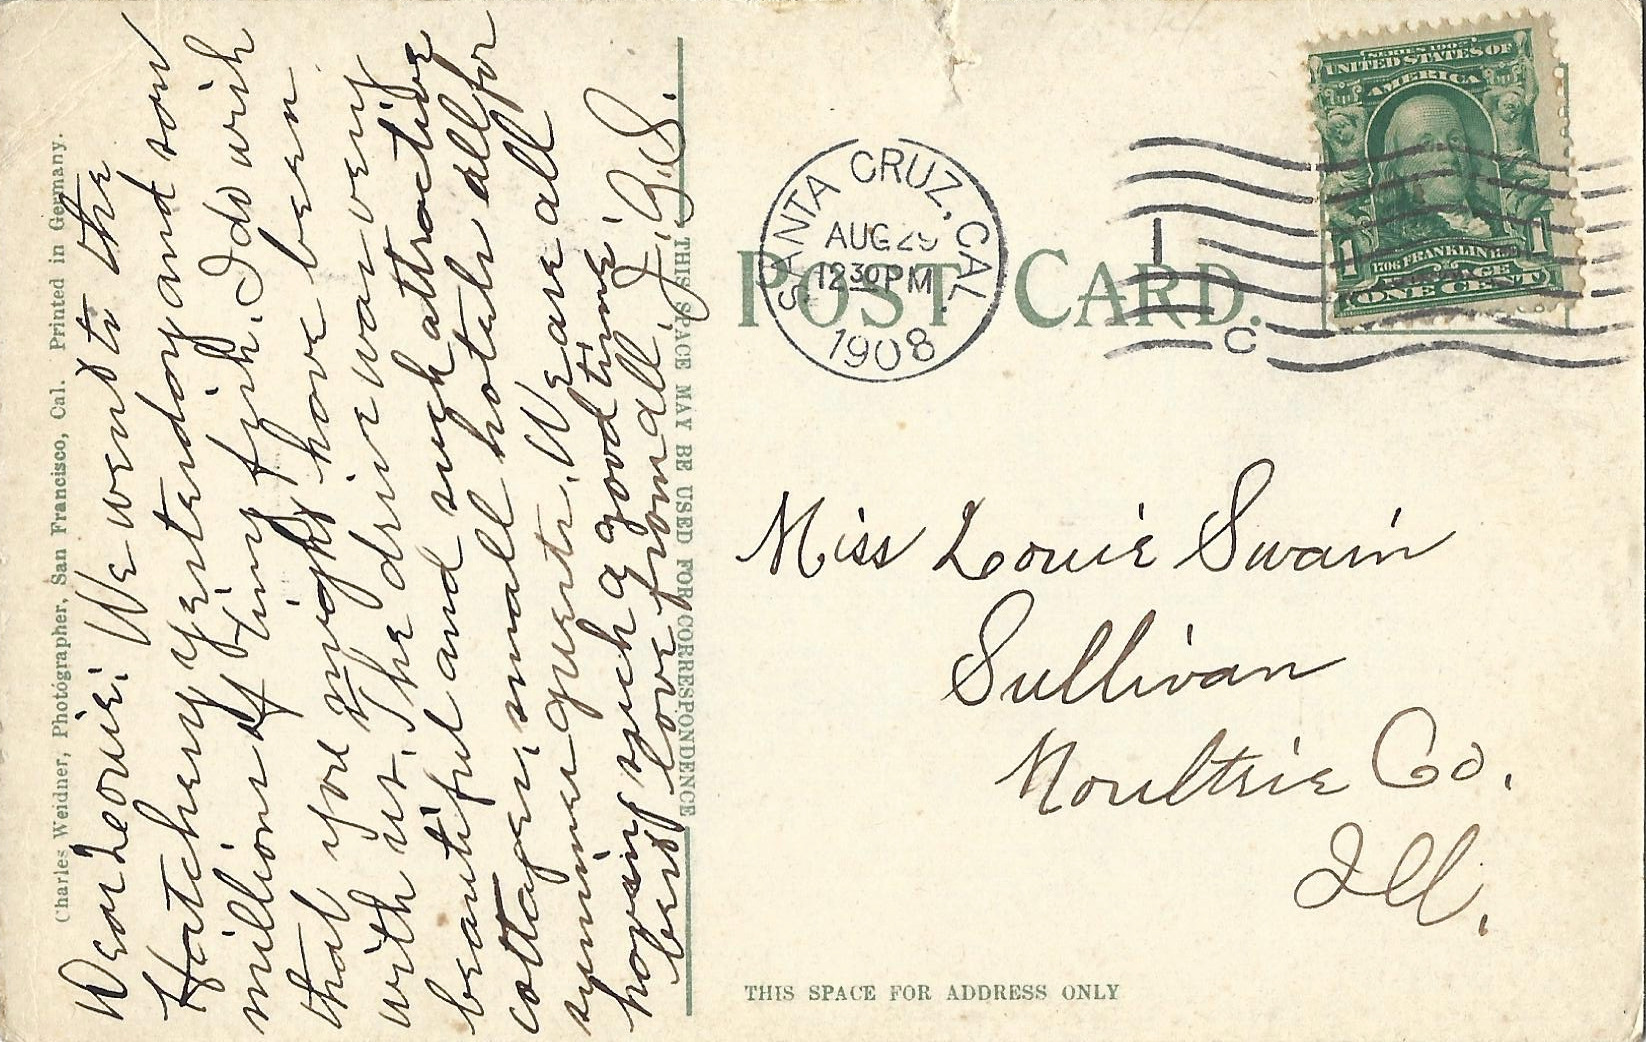 Charles Weidner, Photographer, San Francisco, Cal. Printed in Germany.
Dear Louie: We went to the
Hatchery yesterday and saw
millions of tiny fish. I do wish
that you might have been
with us. The drive was very
beautiful and such attractive
cottages, small hotels all for
summer guests. We are all
having such a good time.
best love from all. J.B.S.
THIS SPACE MAY BE USED FOR CORRESPONDENCE
POST CARD.
SANTA CRUZ, CAL.
AUG 29
12 30 PM
1908
1
C
SERIES 1902
UNITED STATES OF
AMERICA
1 1
1706 FRANKLIN 1790
POSTAGE
ONE CENT
Miss Louie Swain
Sullivan
Moultrie Co.
Ill.
THIS SPACE FOR ADDRESS ONLY